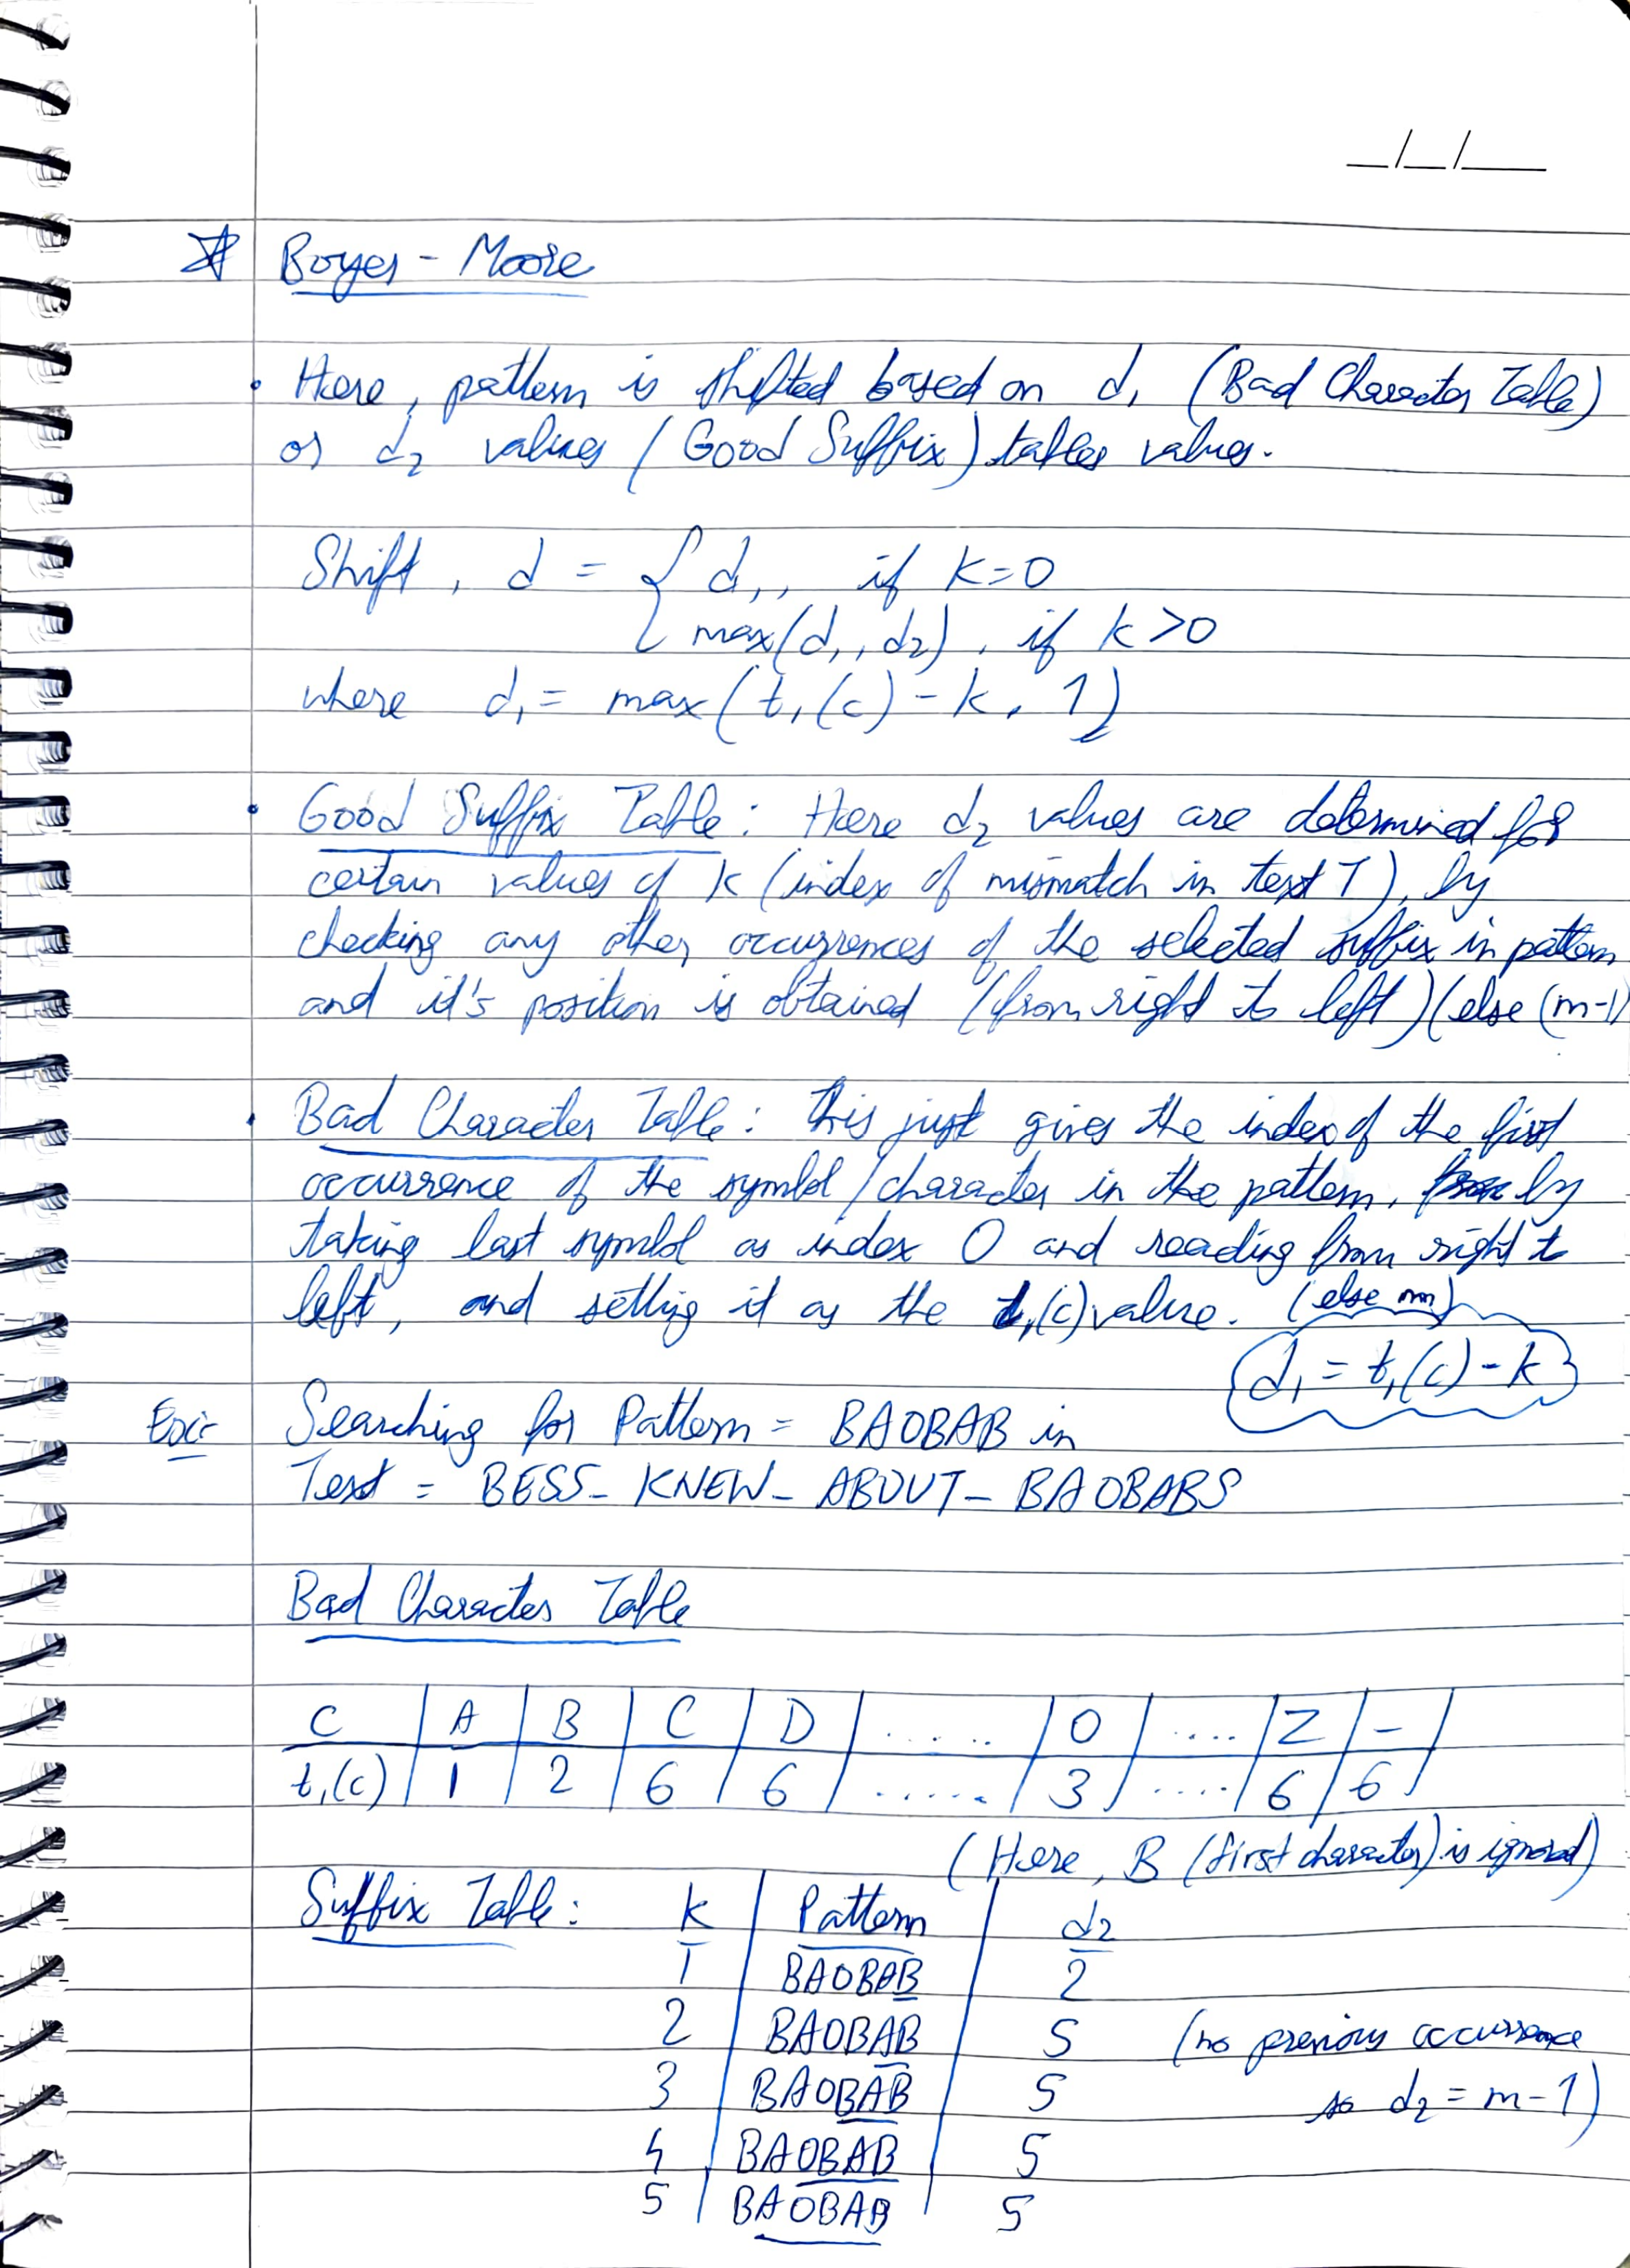 __/__/____
Boyer - Moore
• Here, pattern is shifted based on d₁ (Bad Character Table)
or d₂ values (Good Suffix) tables values.
Shift, d = { d₁, if k=0
max(d₁, d₂), if k>0
where d₁ = max(t₁(c) - k, 1)
• Good Suffix Table: Here d₂ values are determined for
certain values of k (index of mismatch in text T), by
checking any other occurrences of the selected suffix in pattern
and it's position is obtained (from right to left)(else (m-1)
• Bad Character Table: This just gives the index of the first
occurrence of the symbol/character in the pattern, by
taking last symbol as index 0 and reading from right to
left, and setting it as the t₁(c) value. (else m)
d₁ = t₁(c) - k
Ex:- Searching for Pattern = BAOBAB in
Text = BESS_KNEW_ABOUT_BAOBABS
Bad Character Table
C | A | B | C | D | ..... | O | .... | Z | _ |
t₁(c) | 1 | 2 | 6 | 6 | ...... | 3 | .... | 6 | 6 |
(Here, B (first character) is ignored)
Suffix Table: k | Pattern | d₂
1 | BAOBAB | 2
2 | BAOBAB | 5 (no previous occurrence
3 | BAOBAB | 5 so d₂ = m-1)
4 | BAOBAB | 5
5 | BAOBAB | 5